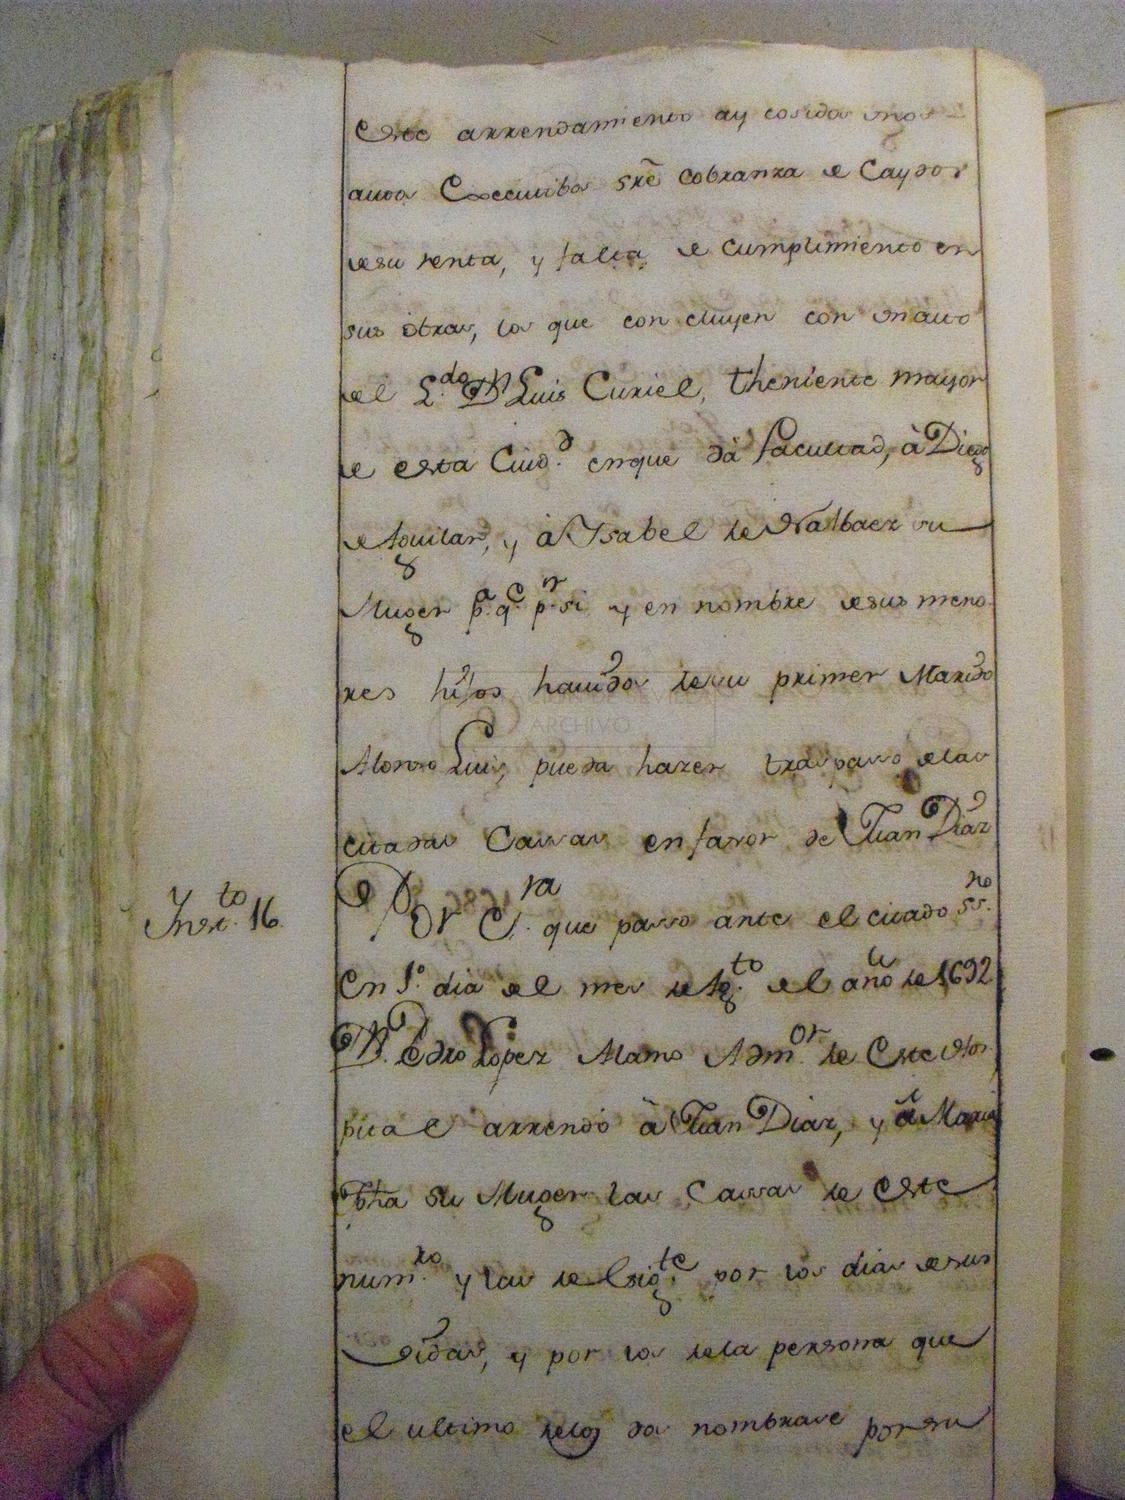 Este arrendamiento ay cosidos vnos
autos Executibos sre cobranza de Caydos
de su renta, y falta de cumplimiento en
sus obras, los que con cluyen con vn auto
del L.do Dn Luis Curiel, Theniente mayor
de esta Ciud.d en que dà facultad, à Diego
de Aguilar, y à Ysabel de Narbaez su
Muger p.a q.e p.r si y en nombre de sus meno
res hijos hauidos de su primer Marido
Alonso Luis, pueda hazer traspasso de las
citadas Cassas en favor de Juan Diaz
Ynst.to 16.
Por C.ra que passo ante el citado ss.no
En 1.o dia del mes de Ag.to del año de 1692
Dn. Pedro Lopez Alamo Adm.or de Este Hos
pital arrendó à Juan Diaz, y à Maria
su Muger las Cassas de Este
num.ro y las del sig.te por los dias de sus
vidas, y por los de la persona que
el ultimo de los dos nombrare por su
ARCHIVO